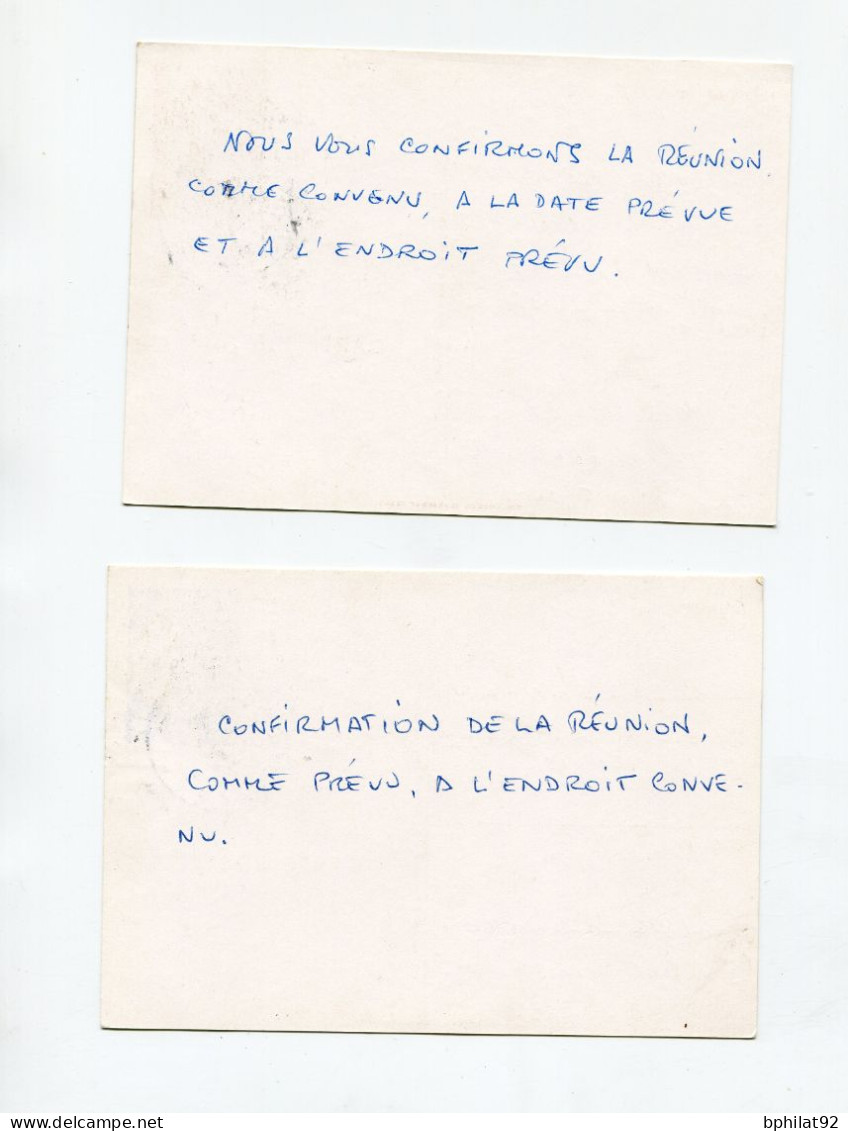 NOUS VOUS CONFIRMONS LA RÉUNION
COMME CONVENU, A LA DATE PRÉVUE
ET A L'ENDROIT PRÉVU.
CONFIRMATION DE LA RÉUNION,
COMME PRÉVU, A L'ENDROIT CONVE-
NU.
bphilat92